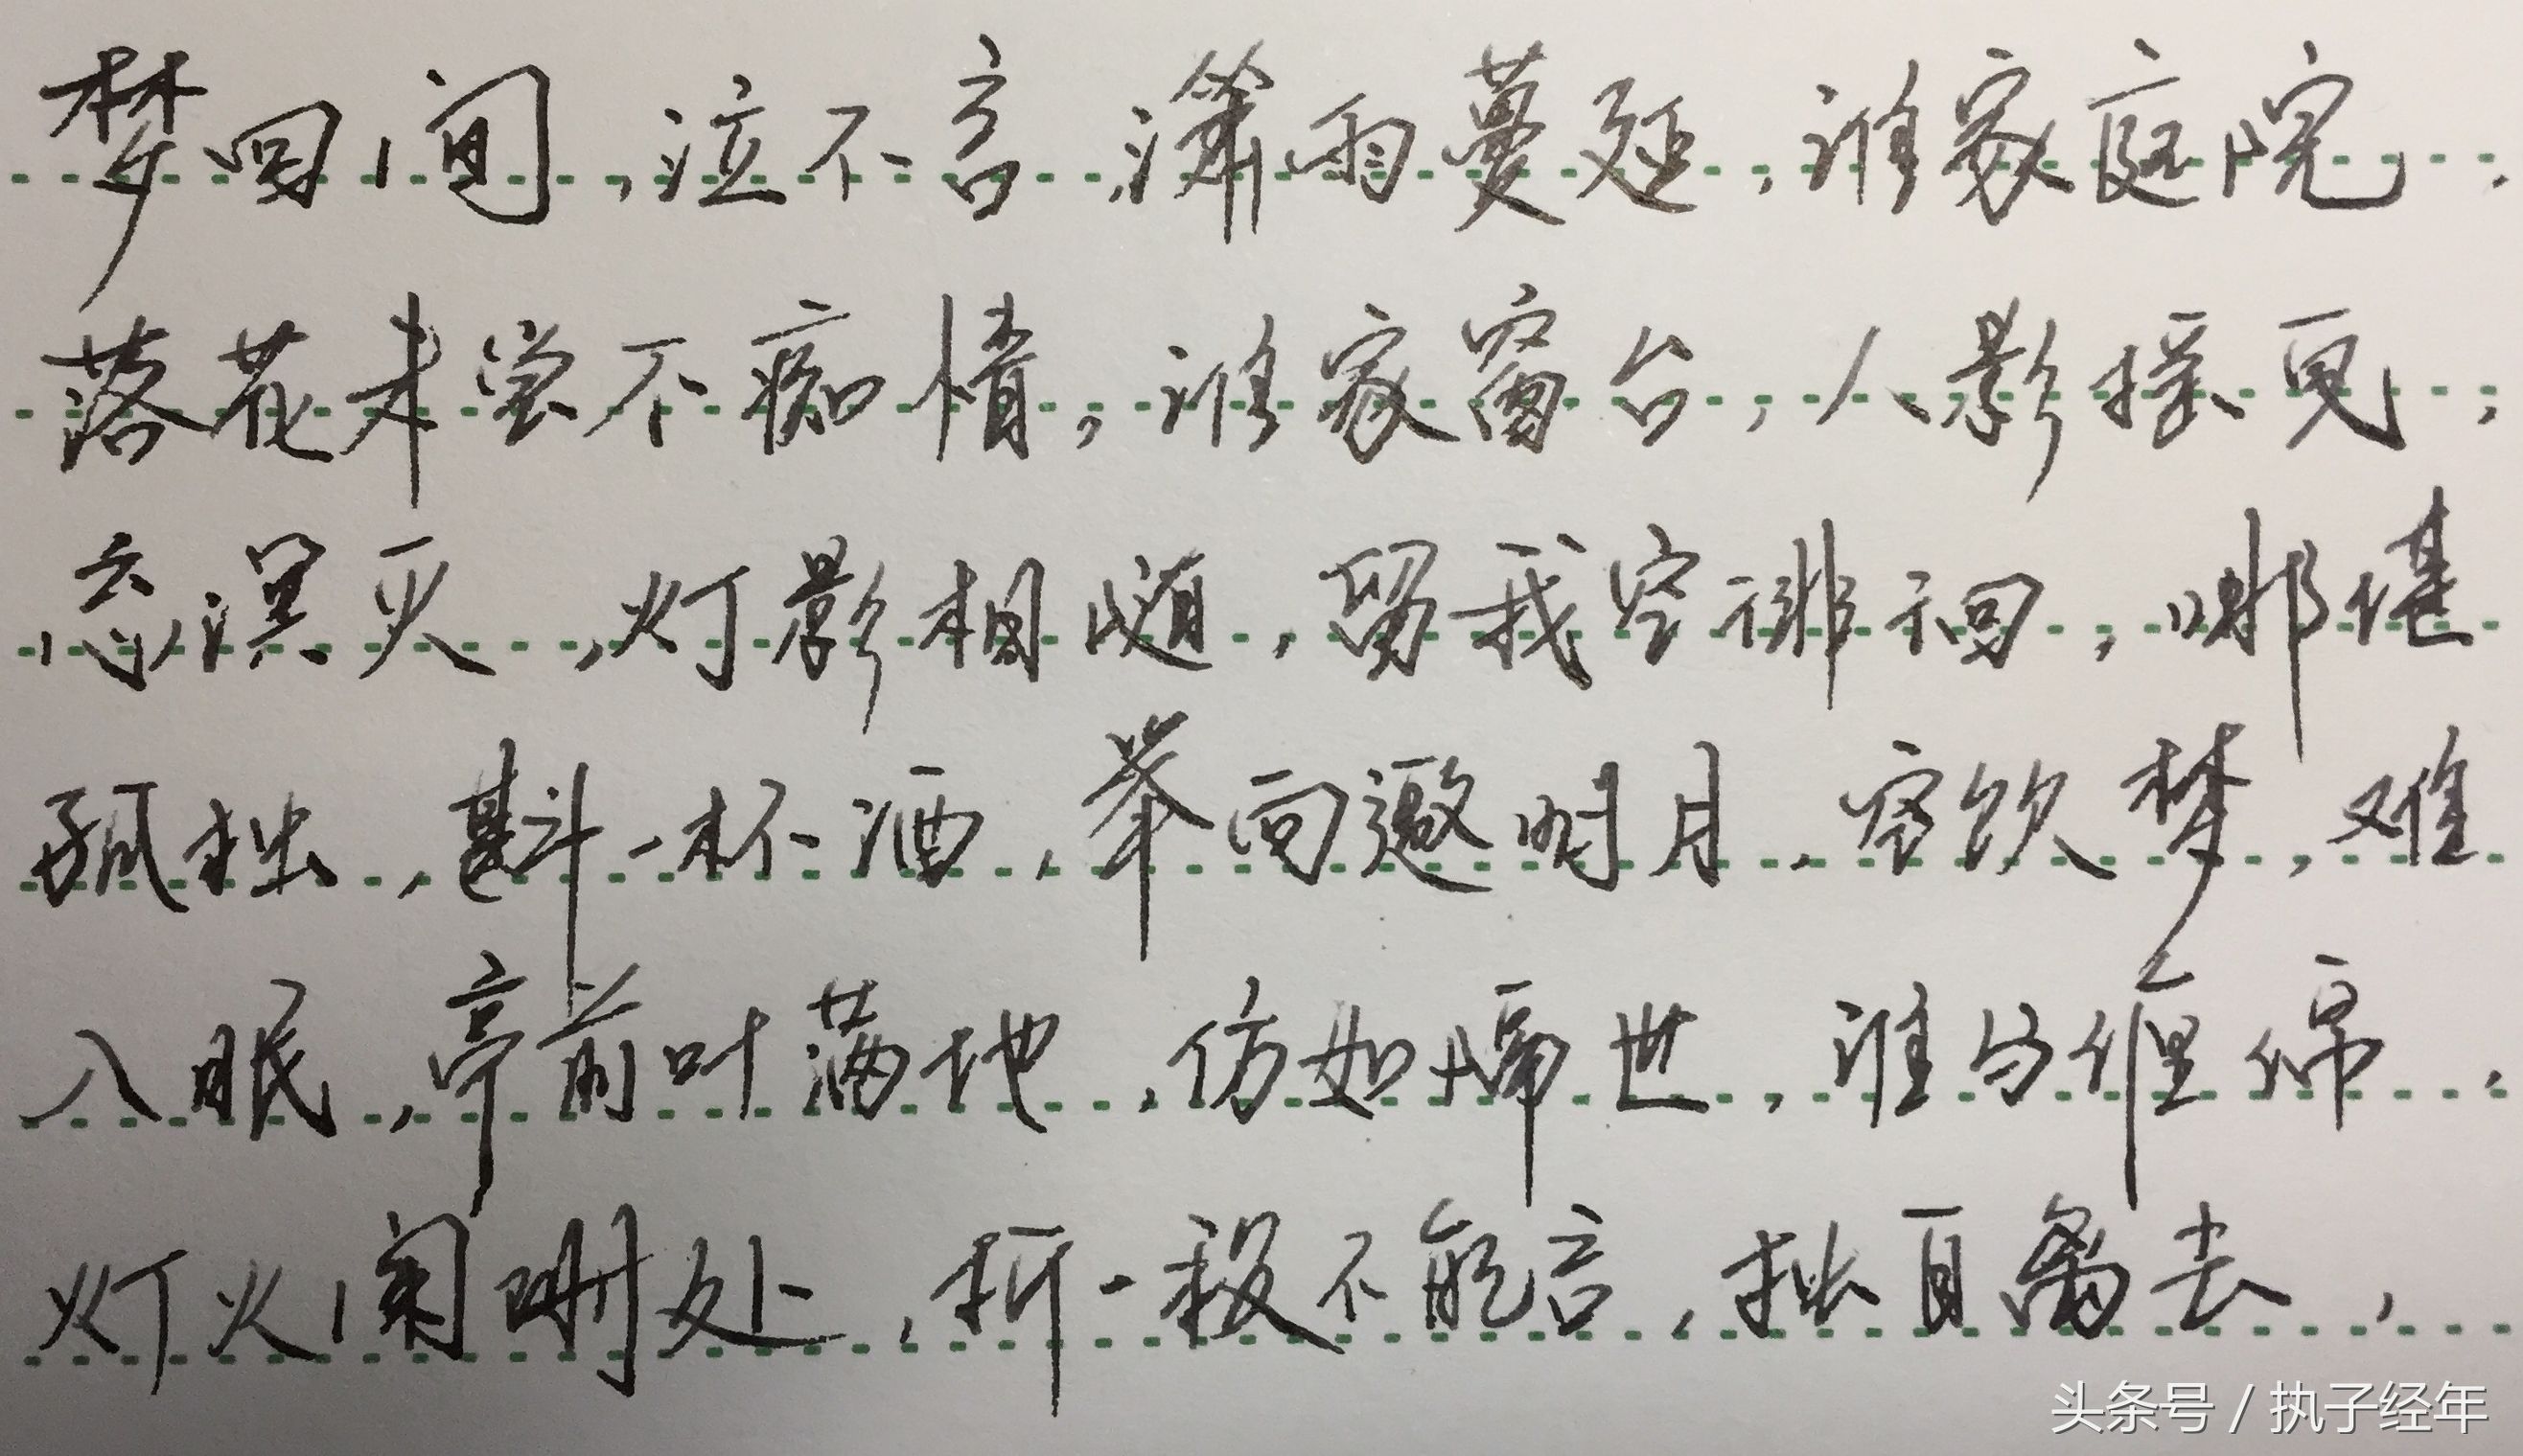 梦回间，泣不言，潇雨蔓延，谁家庭院，
落花未尝不痴情，谁家窗台，人影摇曳，
忽溟灭，灯影相随，留我空徘徊，哪堪
孤独，斟一杯酒，举向邀明月，空饮梦，难
入眠，亭前叶满地，仿如隔世，谁与缠绵，
灯火阑珊处，折一段不能言，独自离去，
头条号 / 执子经年